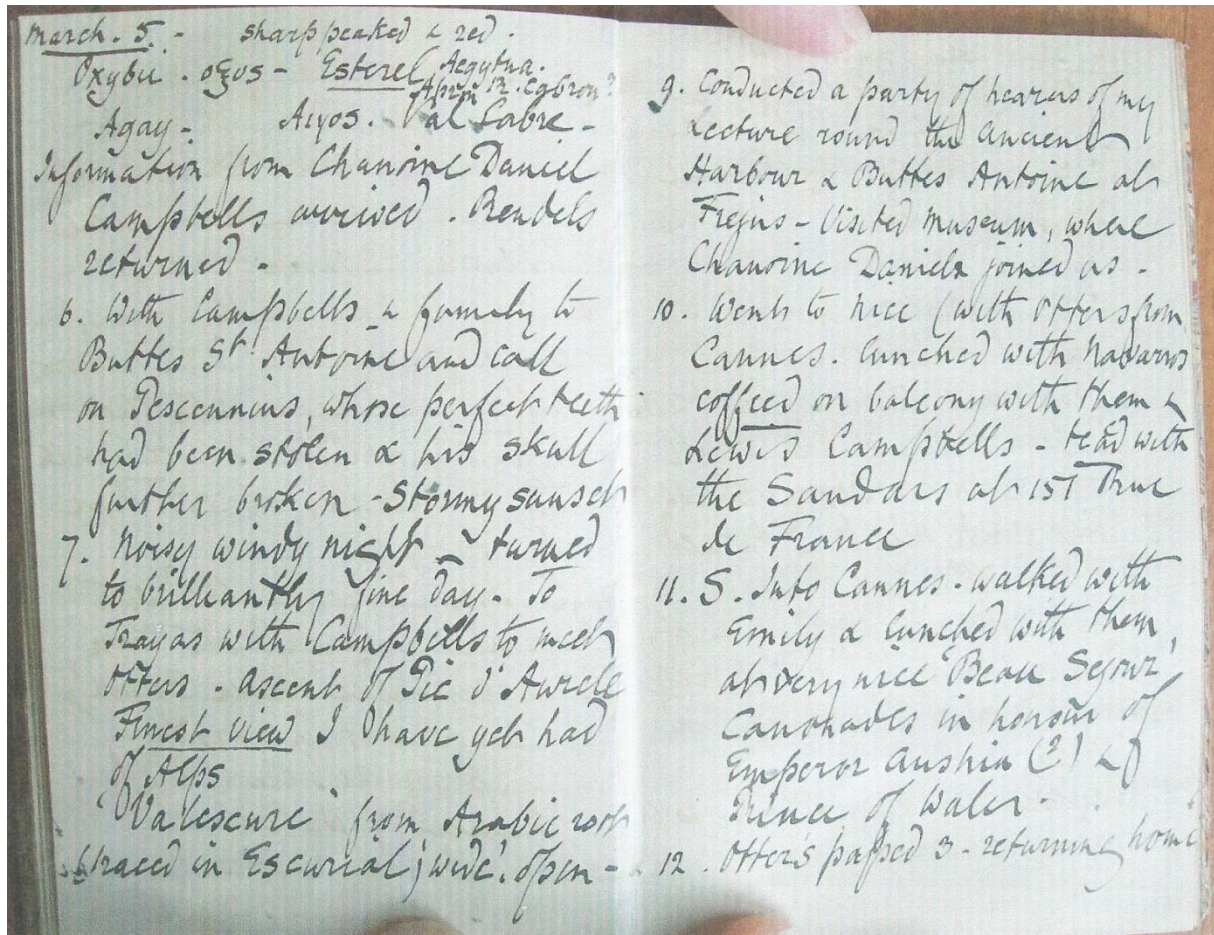 March. 5. - sharp peaked & red.
Oxybii. oξos - Esterel Aegytna.
Agay - Aιγος. Val Labre -
Information from Chanoine Daniel
Campbells arrived. Rendels
returned -
6. With Campbells & family to
Buttes St. Antoine and call
on Pescennius, whose perfect teeth
had been stolen & his skull
further broken - Stormy sunset
7. Noisy windy night - turned
to brilliantly fine day - To
Trayas with Campbells to meet
Otters. ascent of Pic d'Aurele
Finest view I have yet had
of Alps
'Valescure' from Arabic root
traced in Escurial; 'wide', open -
9. Conducted a party of hearers of my
Lecture round the ancient
Harbour & Buttes Antoine at
Frejus - Visited museum, where
Chanoine Daniels joined us -
10. Went to Nice (with Otters from
Cannes. lunched with Navarros
coffeed on balcony with them &
Lewis Campbells - tea'd with
the Sandars at 15 rue
de France
11. S. Into Cannes - walked with
Emily & lunched with them,
at very nice 'Beau Sejour'
Canonades in honour of
Emperor Austria (?) & of
Prince of Wales.
12. Otters passed 3 - returning home